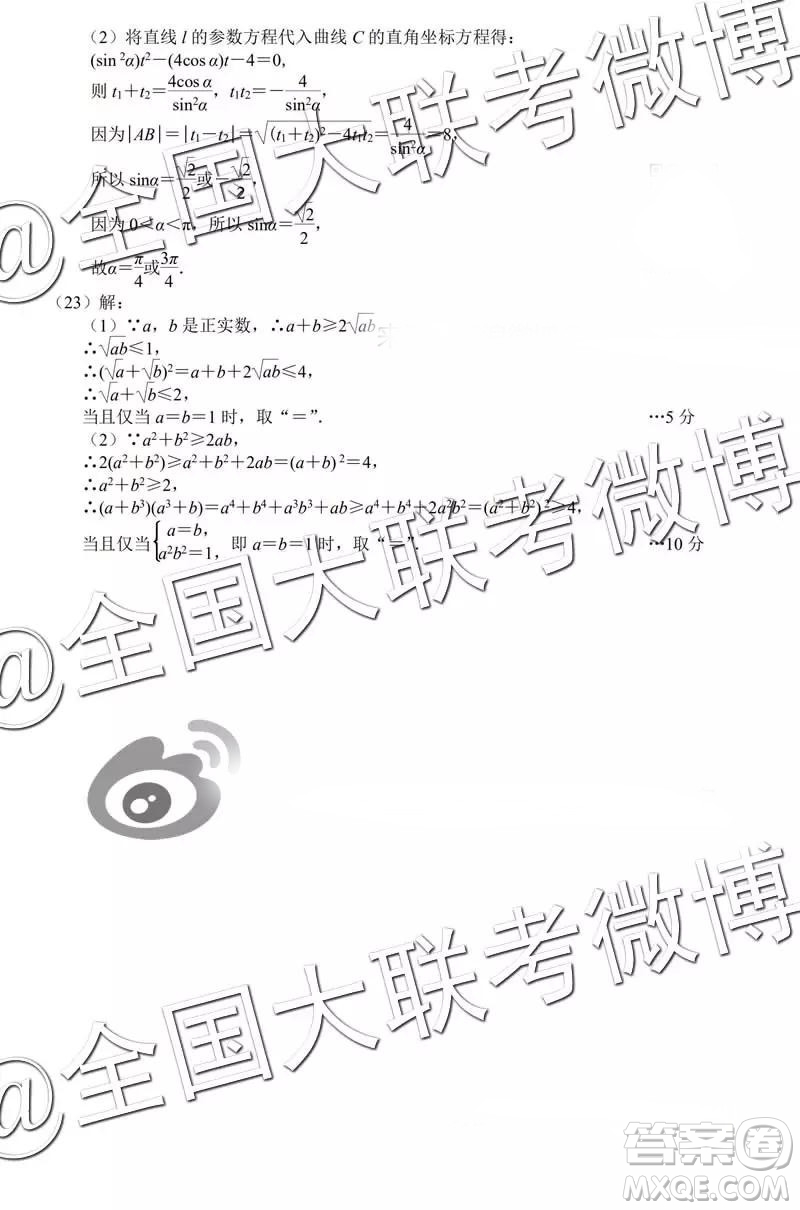 （2）将直线 l 的参数方程代入曲线 C 的直角坐标方程得：
(sin ²α)t²－(4cos α)t－4＝0，
则 t₁＋t₂＝4cos α/sin²α，t₁t₂＝－4/sin²α，
因为|AB|＝|t₁－t₂|＝√((t₁＋t₂)²－4t₁t₂)＝4/sin²α＝8，
所以 sinα＝√2/2或－√2/2，
因为 0＜α＜π，所以 sinα＝√2/2，
故α＝π/4或3π/4.
（23）解：
（1）∵a，b 是正实数，∴a＋b≥2√ab
∴√ab≤1，
∴(√a＋√b)²＝a＋b＋2√ab≤4，
∴√a＋√b≤2，
当且仅当 a＝b＝1 时，取“＝”. …5 分
（2）∵a²＋b²≥2ab，
∴2(a²＋b²)≥a²＋b²＋2ab＝(a＋b)²＝4，
∴a²＋b²≥2，
∴(a＋b³)(a³＋b)＝a⁴＋b⁴＋a³b³＋ab≥a⁴＋b⁴＋2a²b²＝(a²＋b²)²≥4，
当且仅当{a＝b，a²b²＝1，即 a＝b＝1 时，取“＝”. …10 分
@全国大联考微博
@全国大联考微博
@全国大联考微博
答案卷
MXQE.COM